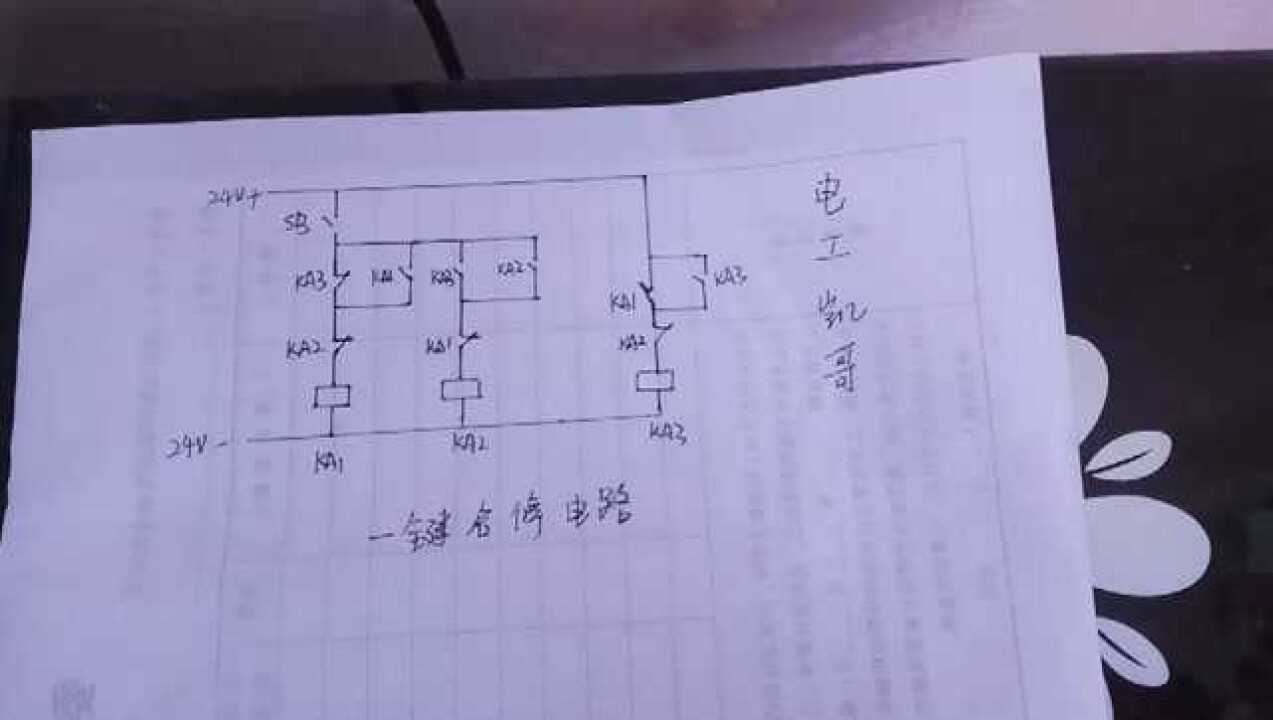 24V+
SB
KA3
KA1
KA3
KA2
KA1
KA3
KA2
KA1
KA2
24V-
KA1
KA2
KA3
一键启停电路
电工凯哥